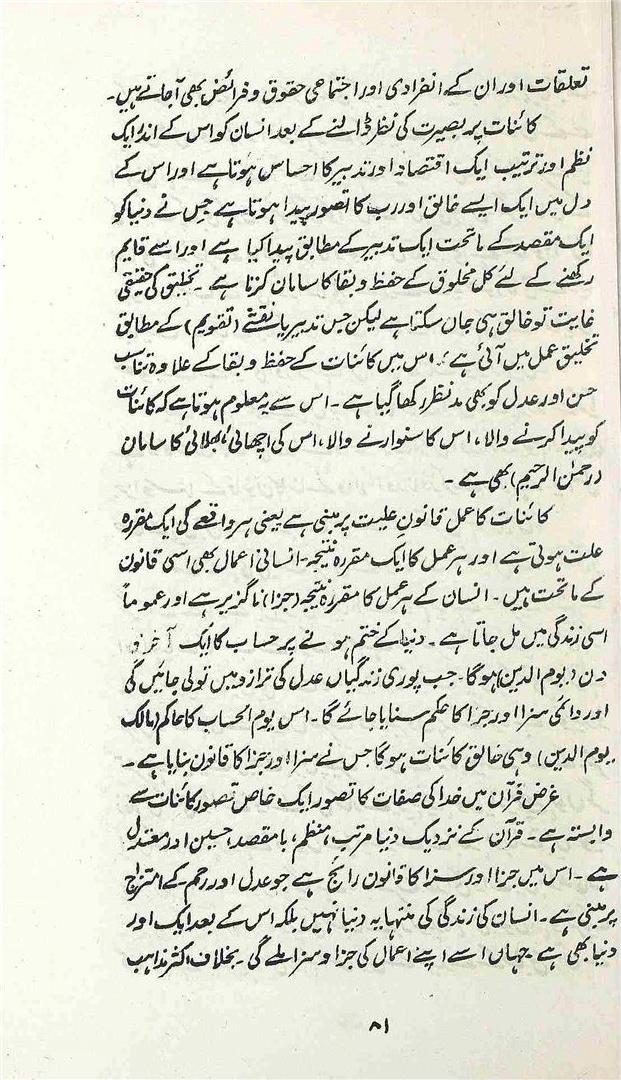 تعلقات اور ان کے انفرادی اور اجتماعی حقوق و فرائض بھی آجاتے ہیں۔
کائنات پر بصیرت کی نظر ڈالنے کے بعد انسان کو اس کے اندر ایک
نظم اور ترتیب ایک اقتصاد اور تدبیر کا احساس ہوتا ہے اور اس کے
دل میں ایک ایسے خالق اور رب کا تصور پیدا ہوتا ہے جس نے دنیا کو
ایک مقصد کے ماتحت ایک تدبیر کے مطابق پیدا کیا ہے اور اسے قایم
رکھنے کے لئے کل مخلوق کے حفظ و بقا کا سامان کرتا ہے۔ تخلیق کی حقیقی
غایت تو خالق ہی جان سکتا ہے لیکن جس تدبیر یا نقشے (تقویم) کے مطابق
تخلیق عمل میں آئی ہے، اس میں کائنات کے حفظ و بقا کے علاوہ تناسب
حسن اور عدل کو بھی مدنظر رکھا گیا ہے۔ اس سے یہ معلوم ہوتا ہے کہ کائنات
کو پیدا کرنے والا، اس کا سنوارنے والا، اس کی اچھائی، بھلائی کا سامان
(رحمٰن الرحیم) بھی ہے۔
کائنات کا عمل قانون علیت پر مبنی ہے یعنی ہر واقعے کی ایک مقررہ
علت ہوتی ہے اور ہر عمل کا ایک مقررہ نتیجہ۔ انسانی اعمال بھی اسی قانون
کے ماتحت ہیں۔ انسان کے ہر عمل کا مقررہ نتیجہ (جزا) ناگزیر ہے اور عموماً
اسی زندگی میں مل جاتا ہے۔ دنیا کے ختم ہونے پر حساب کا ایک آخری
دن (یوم الدین) ہوگا۔ جب پوری زندگیاں عدل کی ترازو میں تولی جائیں گی
اور دائمی سزا اور جزا کا حکم سنایا جائے گا۔ اس یوم الحساب کا حاکم (مالک
یوم الدین) وہی خالق کائنات ہوگا جس نے سزا اور جزا کا قانون بنایا ہے۔
غرض قرآن میں خدا کی صفات کا تصور ایک خاص تصور کائنات سے
وابستہ ہے۔ قرآن کے نزدیک دنیا مرتب، منظم، بامقصد، حسین اور معتدل
ہے۔ اس میں جزا اور سزا کا قانون رائج ہے جو عدل اور رحم کے امتزاج
پر مبنی ہے۔ انسان کی زندگی کی منتہا یہ دنیا نہیں بلکہ اس کے بعد ایک اور
دنیا بھی ہے جہاں اسے اپنے اعمال کی جزا و سزا ملے گی۔ بخلاف اکثر مذاہب
۸۱